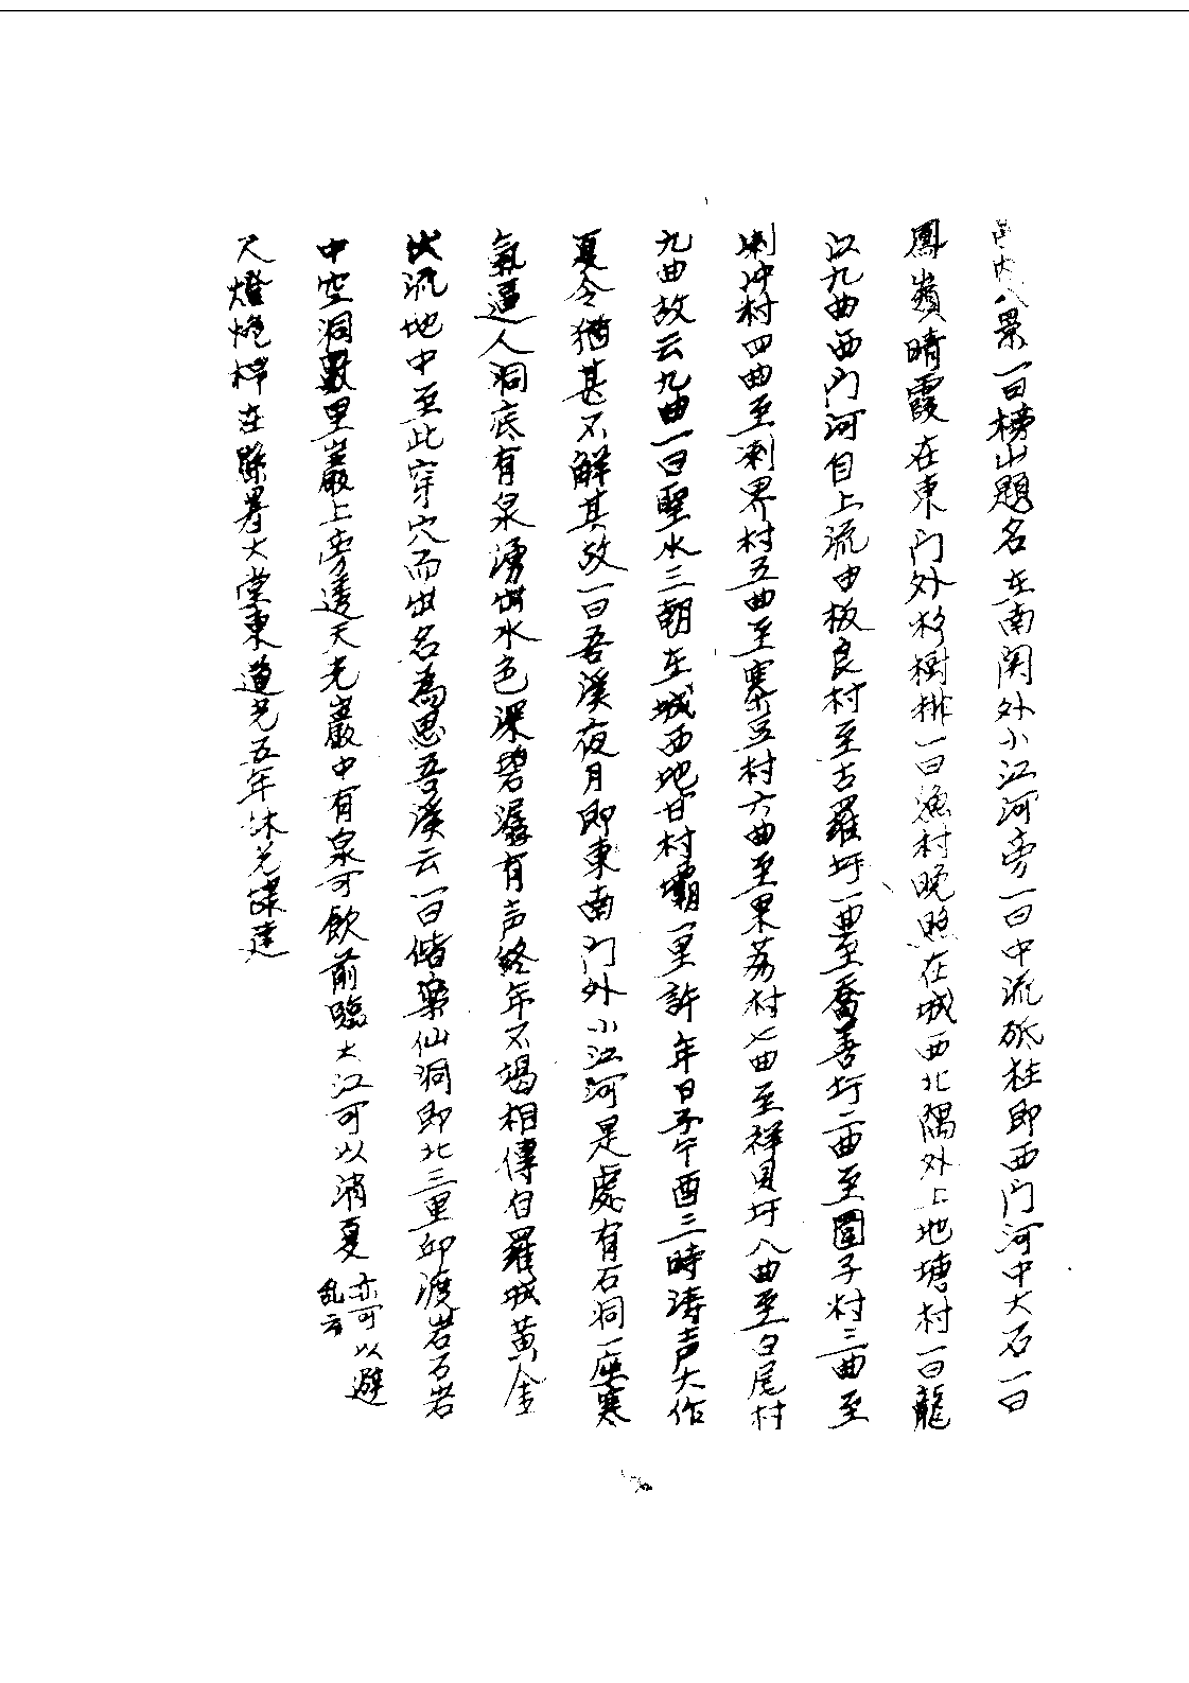 邑内八景一曰榜山題名在南関外小江河旁一曰中流砥柱即西门河中大石一曰
鳳嶺晴霞在東门外杉樹排一曰漁村晚照在城西北隅外上地塘村一曰龍
江九曲西门河自上流由板良村至古羅圩一曲至喬善圩二曲至圍子村三曲至
冲村四曲至界村五曲至寨豆村六曲至果荔村七曲至祥貝圩八曲至尾村
九曲故云九曲一曰聖水三朝在城西地甘村壩一里許年日子午酉三時涛声大作
夏令猶甚不解其故一曰吾溪夜月即東南门外小江河是處有石洞一座寒
氣逼人洞底有泉湧出水色深碧潺有声終年不竭相傳自羅城黄金
伏流地中至此穿穴而出名為思吾溪云一曰仙洞即北三里渡岩石岩
中空洞數里巖上旁透天光巖中有泉可飲前臨大江可以消夏亦可以避
乱云
天燈燈桿在縣署大堂東道光五年建